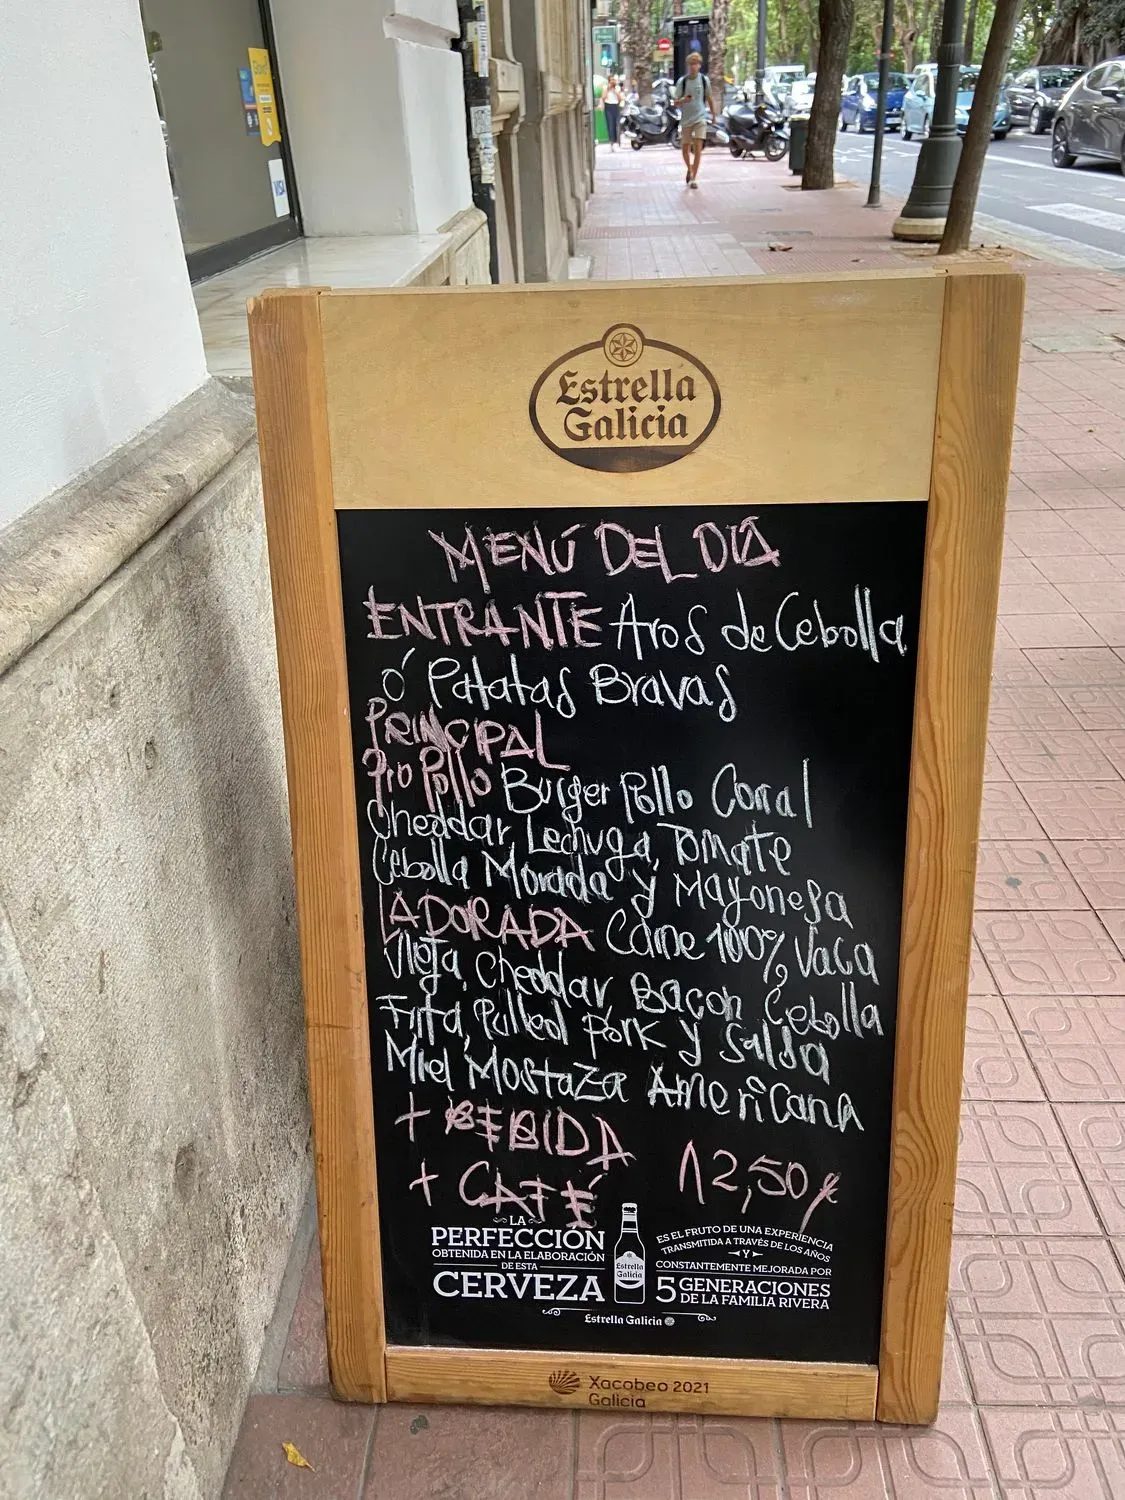 VISA
Estrella
Galicia
MENÚ DEL DIA
ENTRANTE Aros de Cebolla
ó Patatas Bravas
PRINCIPAL
Pio Pollo Burger Pollo Corral
Cheddar, Lechuga, Tomate
Cebolla Morada y Mayonesa
LA DORADA Carne 100% Vaca
Vieja, Cheddar, Bacon, Cebolla
Frita, Pulled Pork y Salsa
Miel Mostaza Americana
+ BEBIDA
+ CAFÉ 12,50 €
LA
PERFECCIÓN
OBTENIDA EN LA ELABORACIÓN
DE ESTA
CERVEZA
Estrella
Galicia
ES EL FRUTO DE UNA EXPERIENCIA
TRANSMITIDA A TRAVÉS DE LOS AÑOS
Y
CONSTANTEMENTE MEJORADA POR
5 GENERACIONES
DE LA FAMILIA RIVERA
Estrella Galicia
Xacobeo 2021
Galicia